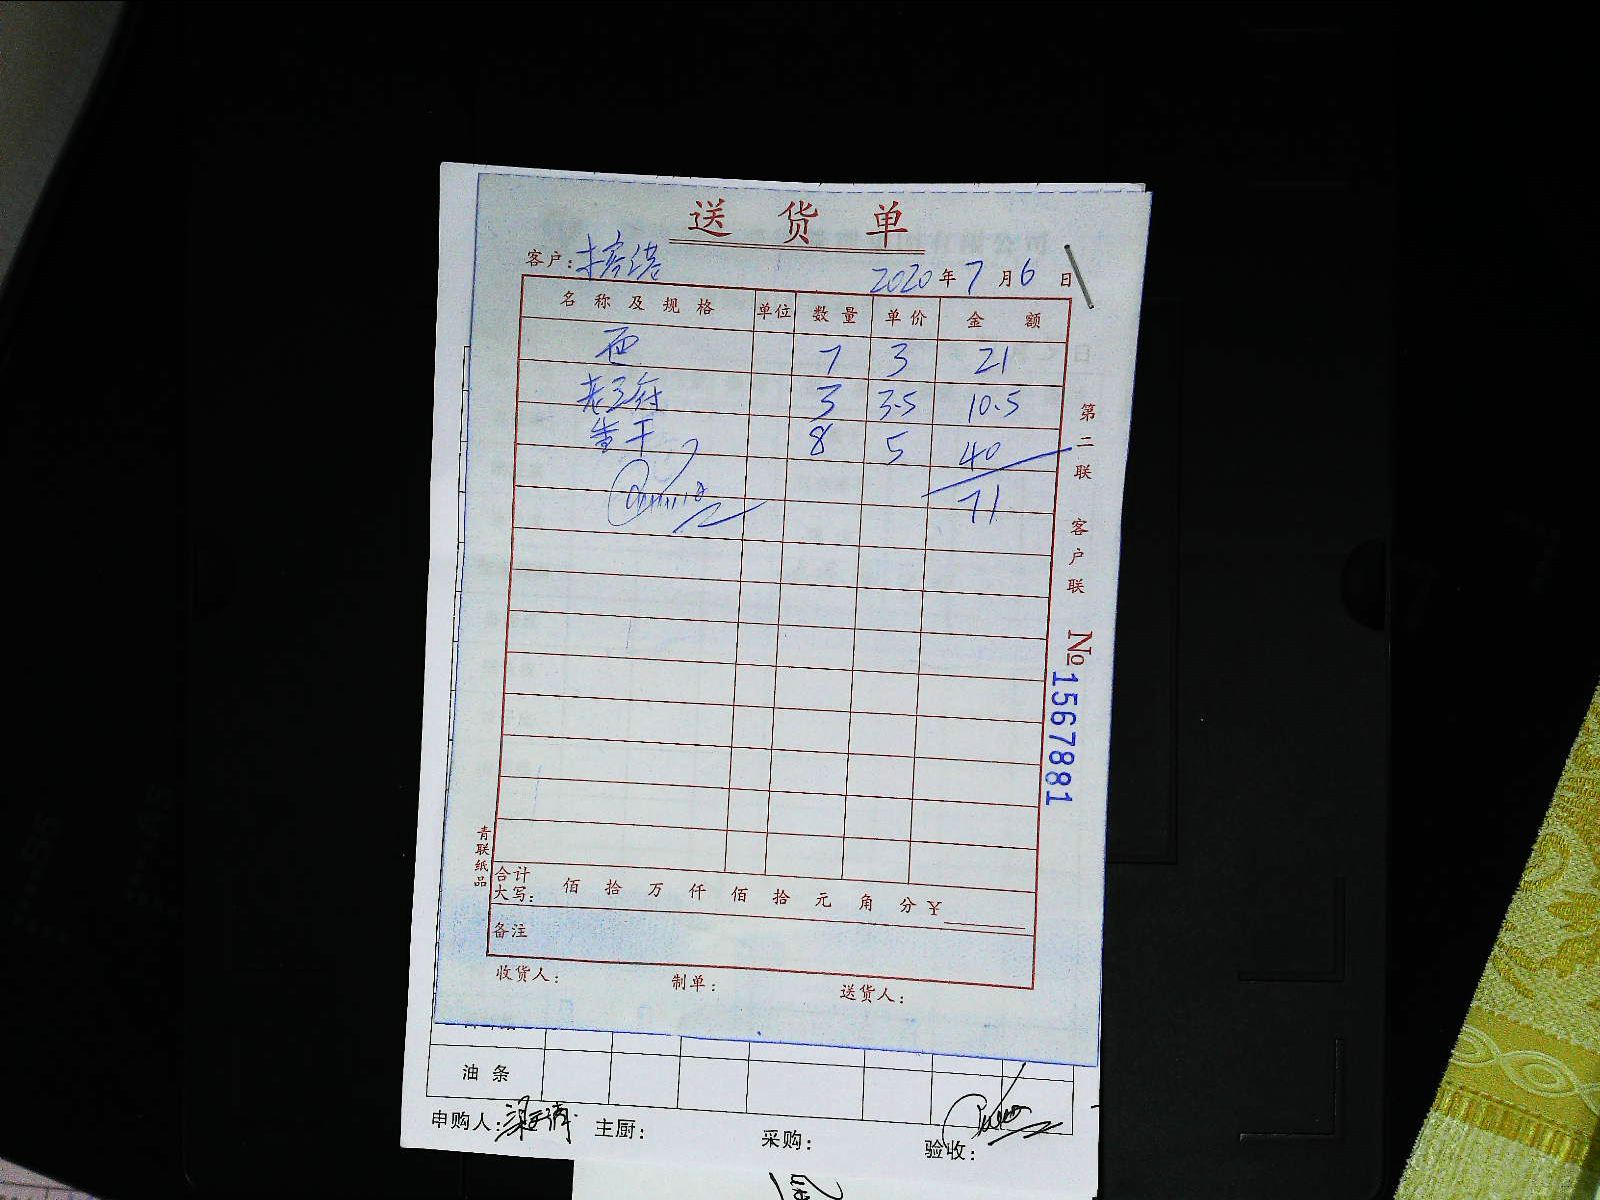 送货单
客户:
2020年7月6日
名称及规格 单位 数量 单价 金额
7 3 21
老豆腐 3 3.5 10.5
8 5 40
71
第二联 客户联
No1567881
青联纸品
合计大写: 佰 拾 万 仟 佰 拾 元 角 分 ¥
备注
收货人: 制单: 送货人:
油条
申购人: 主厨: 采购: 验收: